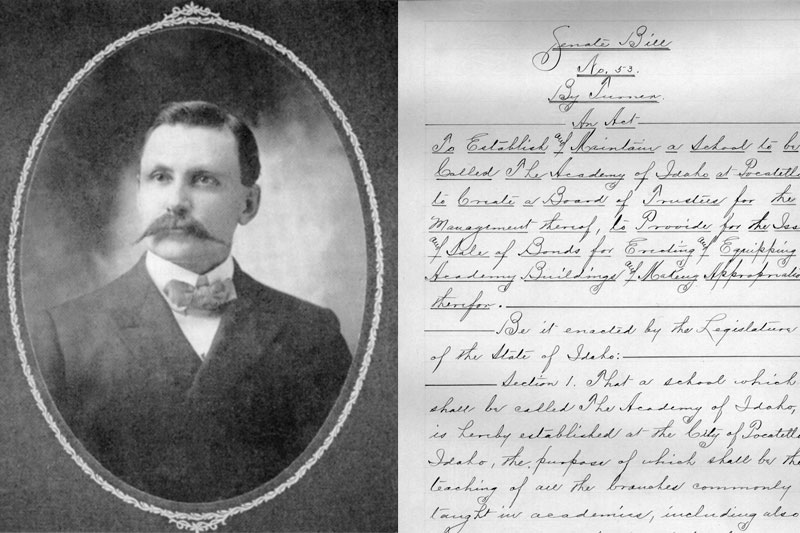 Senate Bill
No. 53.
By Turner.
An Act
To Establish and Maintain a School to be
Called The Academy of Idaho at Pocatello
to Create a Board of Trustees for the
Management thereof, to Provide for the Iss
and Sale of Bonds for Erecting and Equipping
Academy Buildings and Making Appropriatio
therefor.
Be it enacted by the Legislature
of the State of Idaho:
Section 1. That a school which
shall be called The Academy of Idaho,
is hereby established at the City of Pocatello
Idaho, the purpose of which shall be the
teaching of all the branches commonly
taught in academies, including also